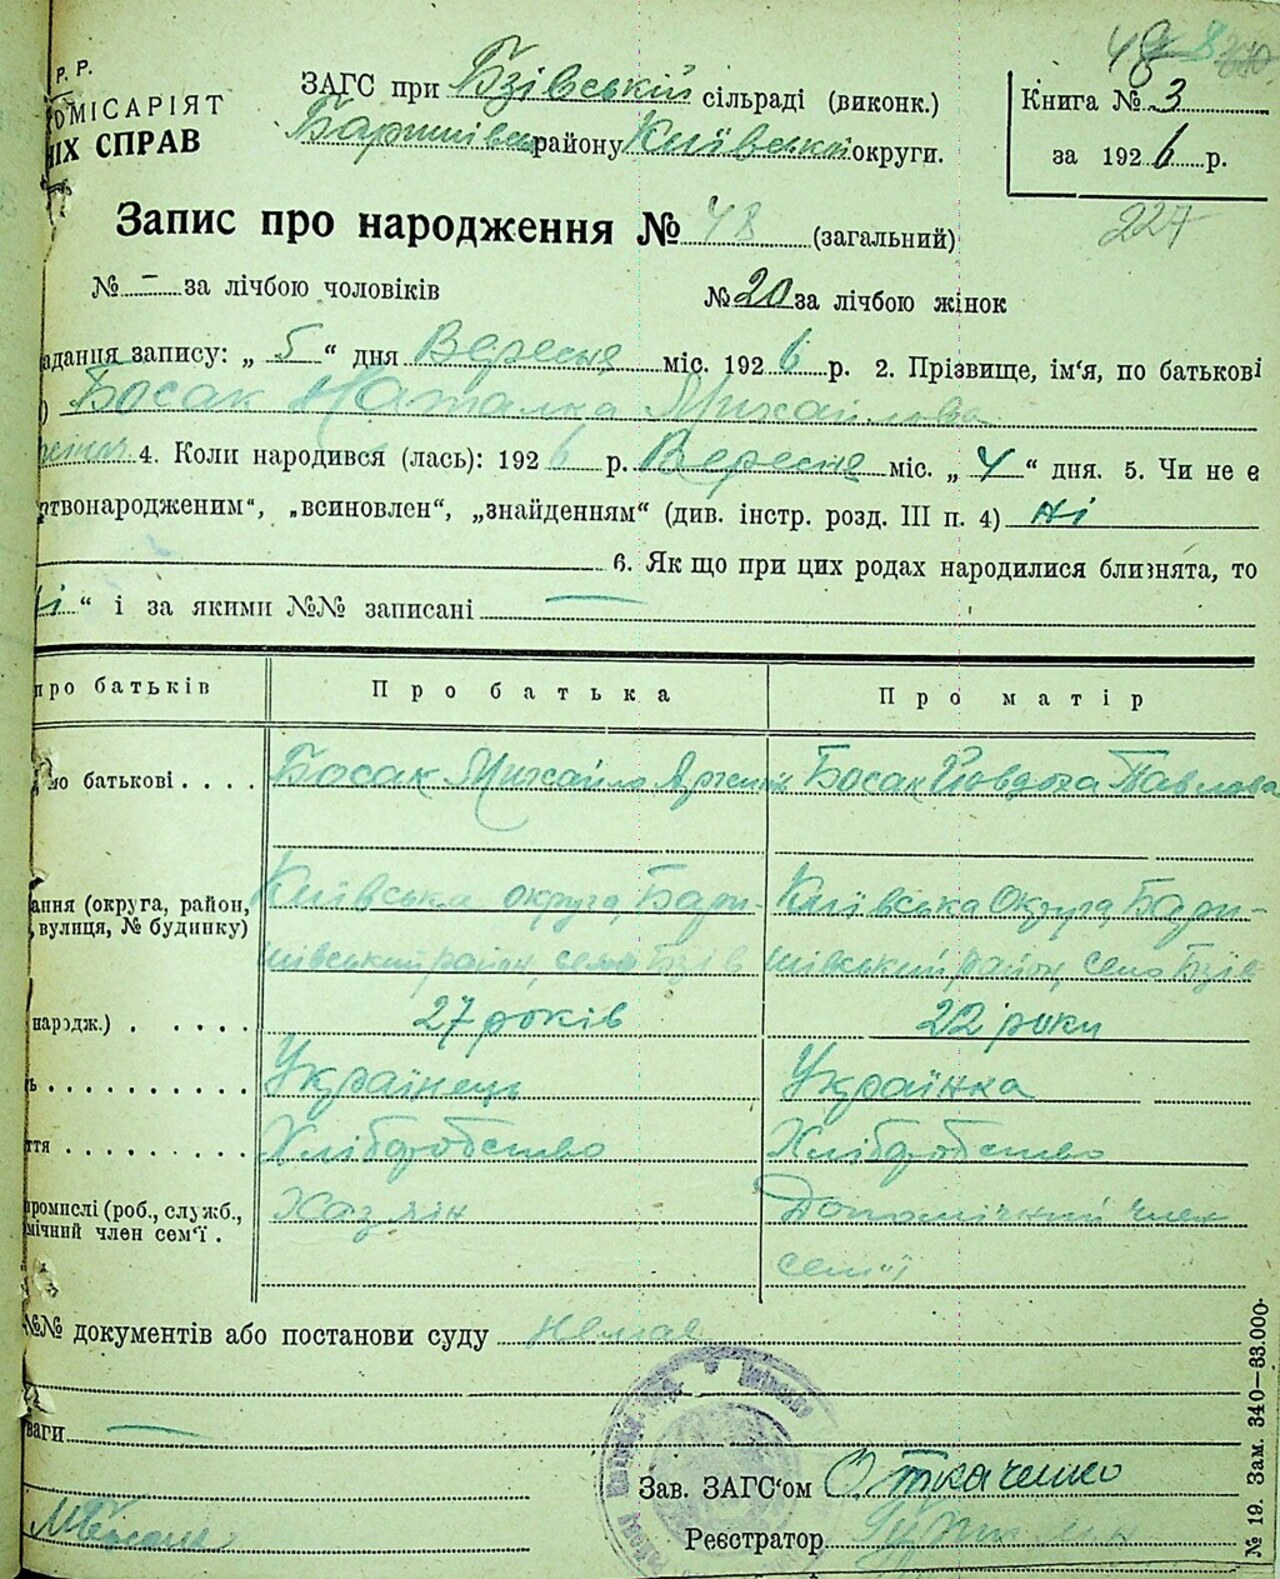 Р. Р.
ОМІСАРІЯТ
ІХ СПРАВ
ЗАГС при Бзівській сільраді (виконк.)
Баришівськ району Київської округи.
48
Книга № 3
за 1926 р.
227
Запис про народження № 48 (загальний)
№ – за лічбою чоловіків № 20 за лічбою жінок
адання запису: „ 5 “ дня Вересня міс. 1926 р. 2. Прізвище, ім‘я, по батькові
) Босак Наталка Михайлова
4. Коли народився (лась): 1926 р. Вересня міс. „ 4 “ дня. 5. Чи не є
ртвонародженим“, „всиновлен“, „знайденням“ (див. інстр. розд. III п. 4) ні
6. Як що при цих родах народилися близнята, то
ні “ і за якими №№ записані —
про батьків Про батька Про матір
по батькові . . . . Босак Михайло Босак Йовдоха Павлова
ання (округа, район, Київська округа, Бари- Київська Округа, Бари-
, вулиця, № будинку) шівський район, село Бзів шівський район, село Бзів
народж.) . . . . . 27 років 22 роки
ь . . . . . . . . . . Українець Українка
ття . . . . . . . . . Хліборобство Хліборобство
промислі (роб., служб., Хазяїн Допомічний член
мічний член сем‘ї . сем'ї
№№ документів або постанови суду Немає
ваги —
Зав. ЗАГС‘ом О Ткаченко
Реєстратор
№ 19. Зам. 340—33.000.